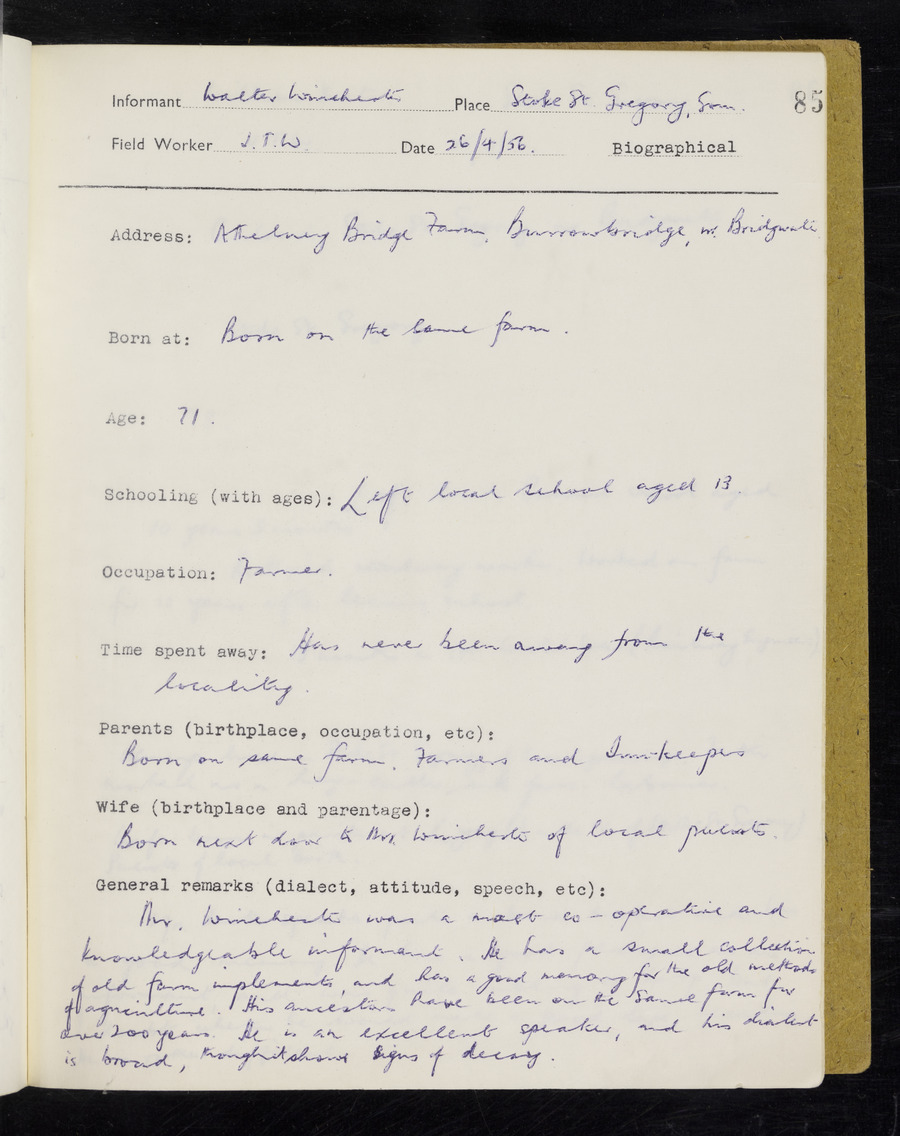 Informant Walter Winchester Place Stoke St. Gregory, Som. 85
Field Worker J.T.W. Date 26/4/56. Biographical
Address: Athelney Bridge Farm, Burrowbridge, nr. Bridgwater
Born at: Born on the same farm.
Age: 71.
Schooling (with ages): Left local school aged 13.
Occupation: Farmer.
Time spent away: Has never been away from the
locality.
Parents (birthplace, occupation, etc):
Born on same farm. Farmers and Innkeepers
Wife (birthplace and parentage):
Born next door to Mr. Winchester of local parents.
General remarks (dialect, attitude, speech, etc):
Mr. Winchester was a most co-operative and
knowledgeable informant. He has a small collection
of old farm implements, and has a good memory for the old methods
of agriculture. His ancestors have been on the same farm for
over 200 years. He is an excellent speaker, and his dialect
is broad, though it shows signs of decay.